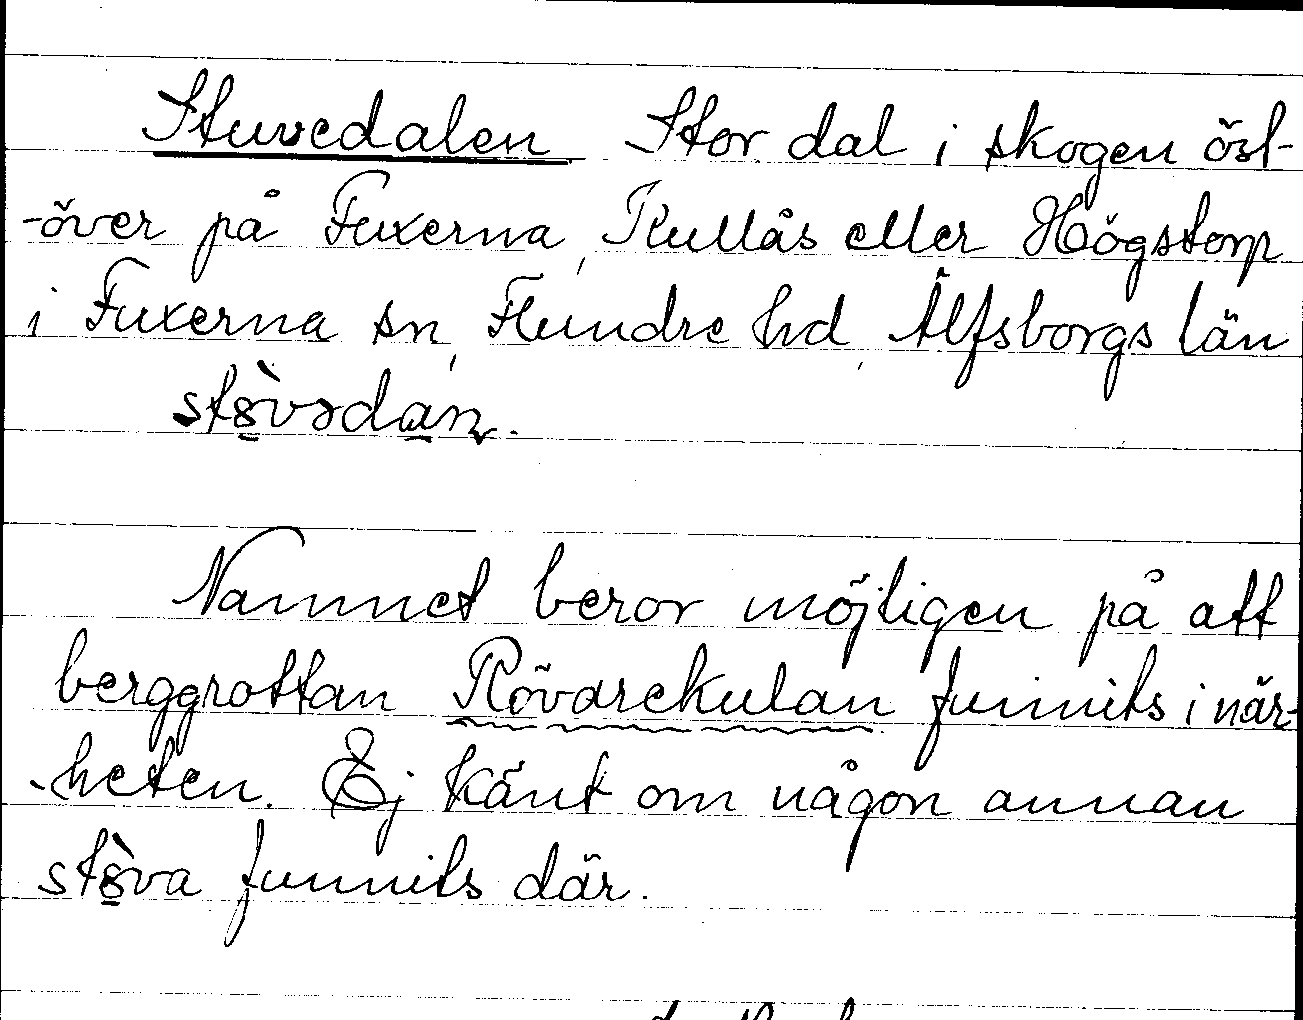 Stuvedalen Stor dal i skogen öst-
-över på Fuxerna, Kullås eller Högstorp
i Fuxerna sn, Flundre hd, Älfsborgs län
stə̀vədan.
Namnet beror möjligen på att
berggrottan Rövarekulan funnits i när-
-heten. Ej känt om någon annan
stə̀va funnits där.